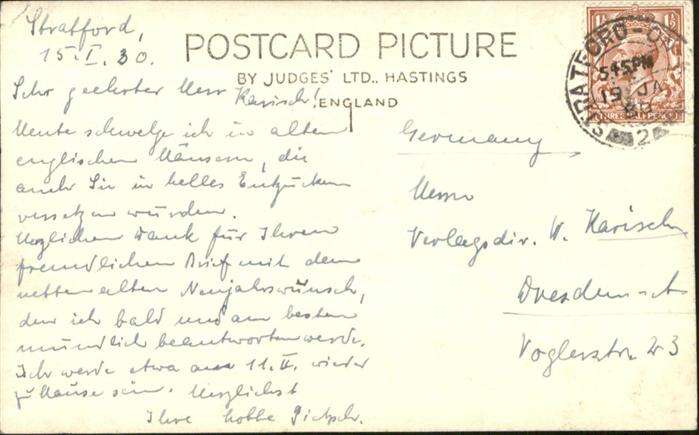 Stratford,
15.I.30.
POSTCARD PICTURE
BY JUDGES' LTD., HASTINGS
ENGLAND
Sehr geehrter Herr Karisch!
Heute schwelge ich in alten
englischen Häusern, die
auch Sie in helles Entzücken
versetzen würden.
Herzlichen Dank für Ihren
freundlichen Brief mit dem
netten alten Neujahrswunsch,
den ich bald und am besten
mündlich beantworten werde.
Ich werde etwa am 11.II. wieder
zu Hause sein. Herzlichst
Ihre
Germany
Herrn
Verlagsdir. W. Karisch
Dresden-A
Voglerstr 23
STRATFORD-ON
545PM
JA
30
2
THREE HALF PENCE